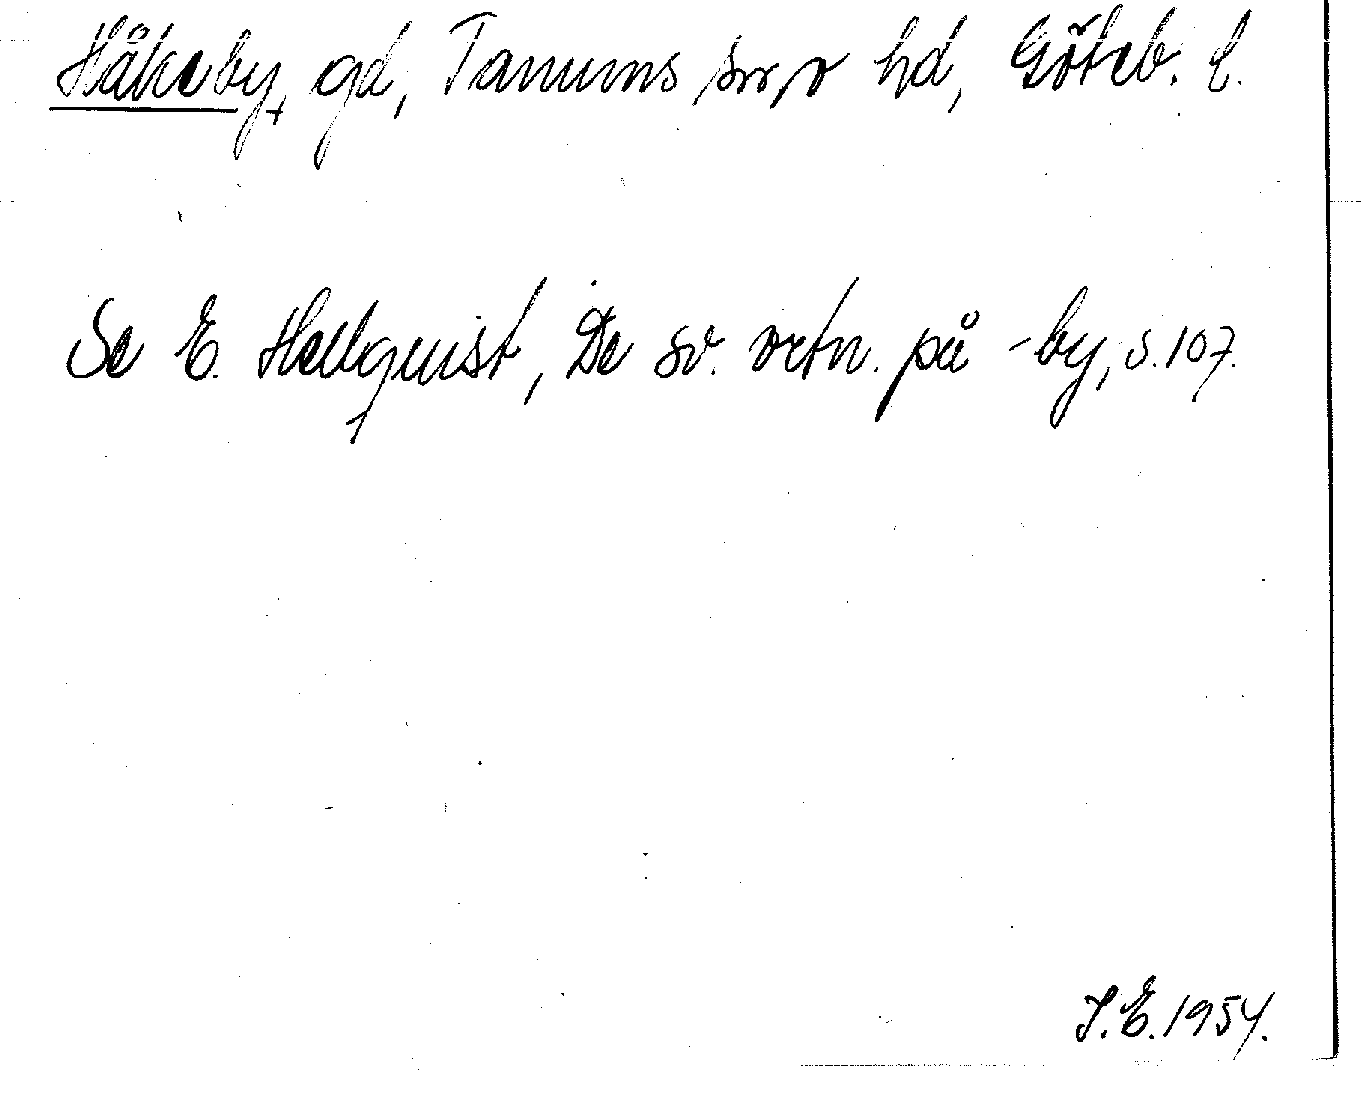 Håkeby, gd, Tanums sn o hd, Göteb. l.
Se E. Hellquist, De sv. ortn. på -by, s. 107.
I.E. 1954.